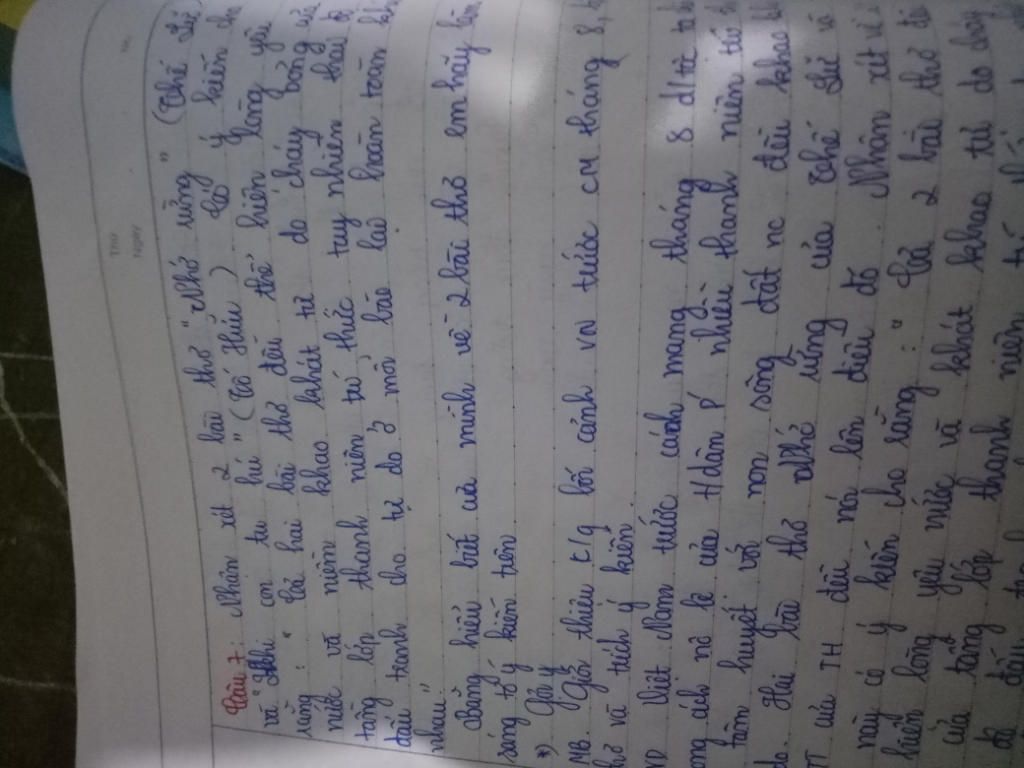 Thứ
Ngày
No.
Câu 7: Nhận xét 2 bài thơ "Nhớ rừng" (Thế Lữ)
và "Khi con tu hú" (Tố Hữu) có ý kiến cho
rằng: " cả hai bài thơ đều thể hiện lòng yêu
nước và niềm khao khát tự do cháy bỏng của
tầng lớp thanh niên trí thức tuy nhiên thái độ
đấu tranh cho tự do ở mỗi bài lại hoàn toàn khác
nhau"
Bằng hiểu biết của mình về 2 bài thơ em hãy làm
sáng tỏ ý kiến trên
*) Gợi ý
MB. Giới thiệu t/g bối cảnh VN trước CM tháng 8,
thơ và trích ý kiến.
VD Việt Nam trước cách mạng tháng 8 d/tộc ta
ách nô lệ của tdân P' nhiều thanh niên trí
tâm huyết với non sông đất nc đều khao
do. Hai bài thơ Nhớ rừng của Thế Lữ và
của TH đều nói lên điều đó. Nhận xét về
này có ý kiến cho rằng: " Cả 2 bài thơ đều
hiện lòng yêu nước và khát khao tự do cháy
của tầng lớp thanh niên trí
độ đấu